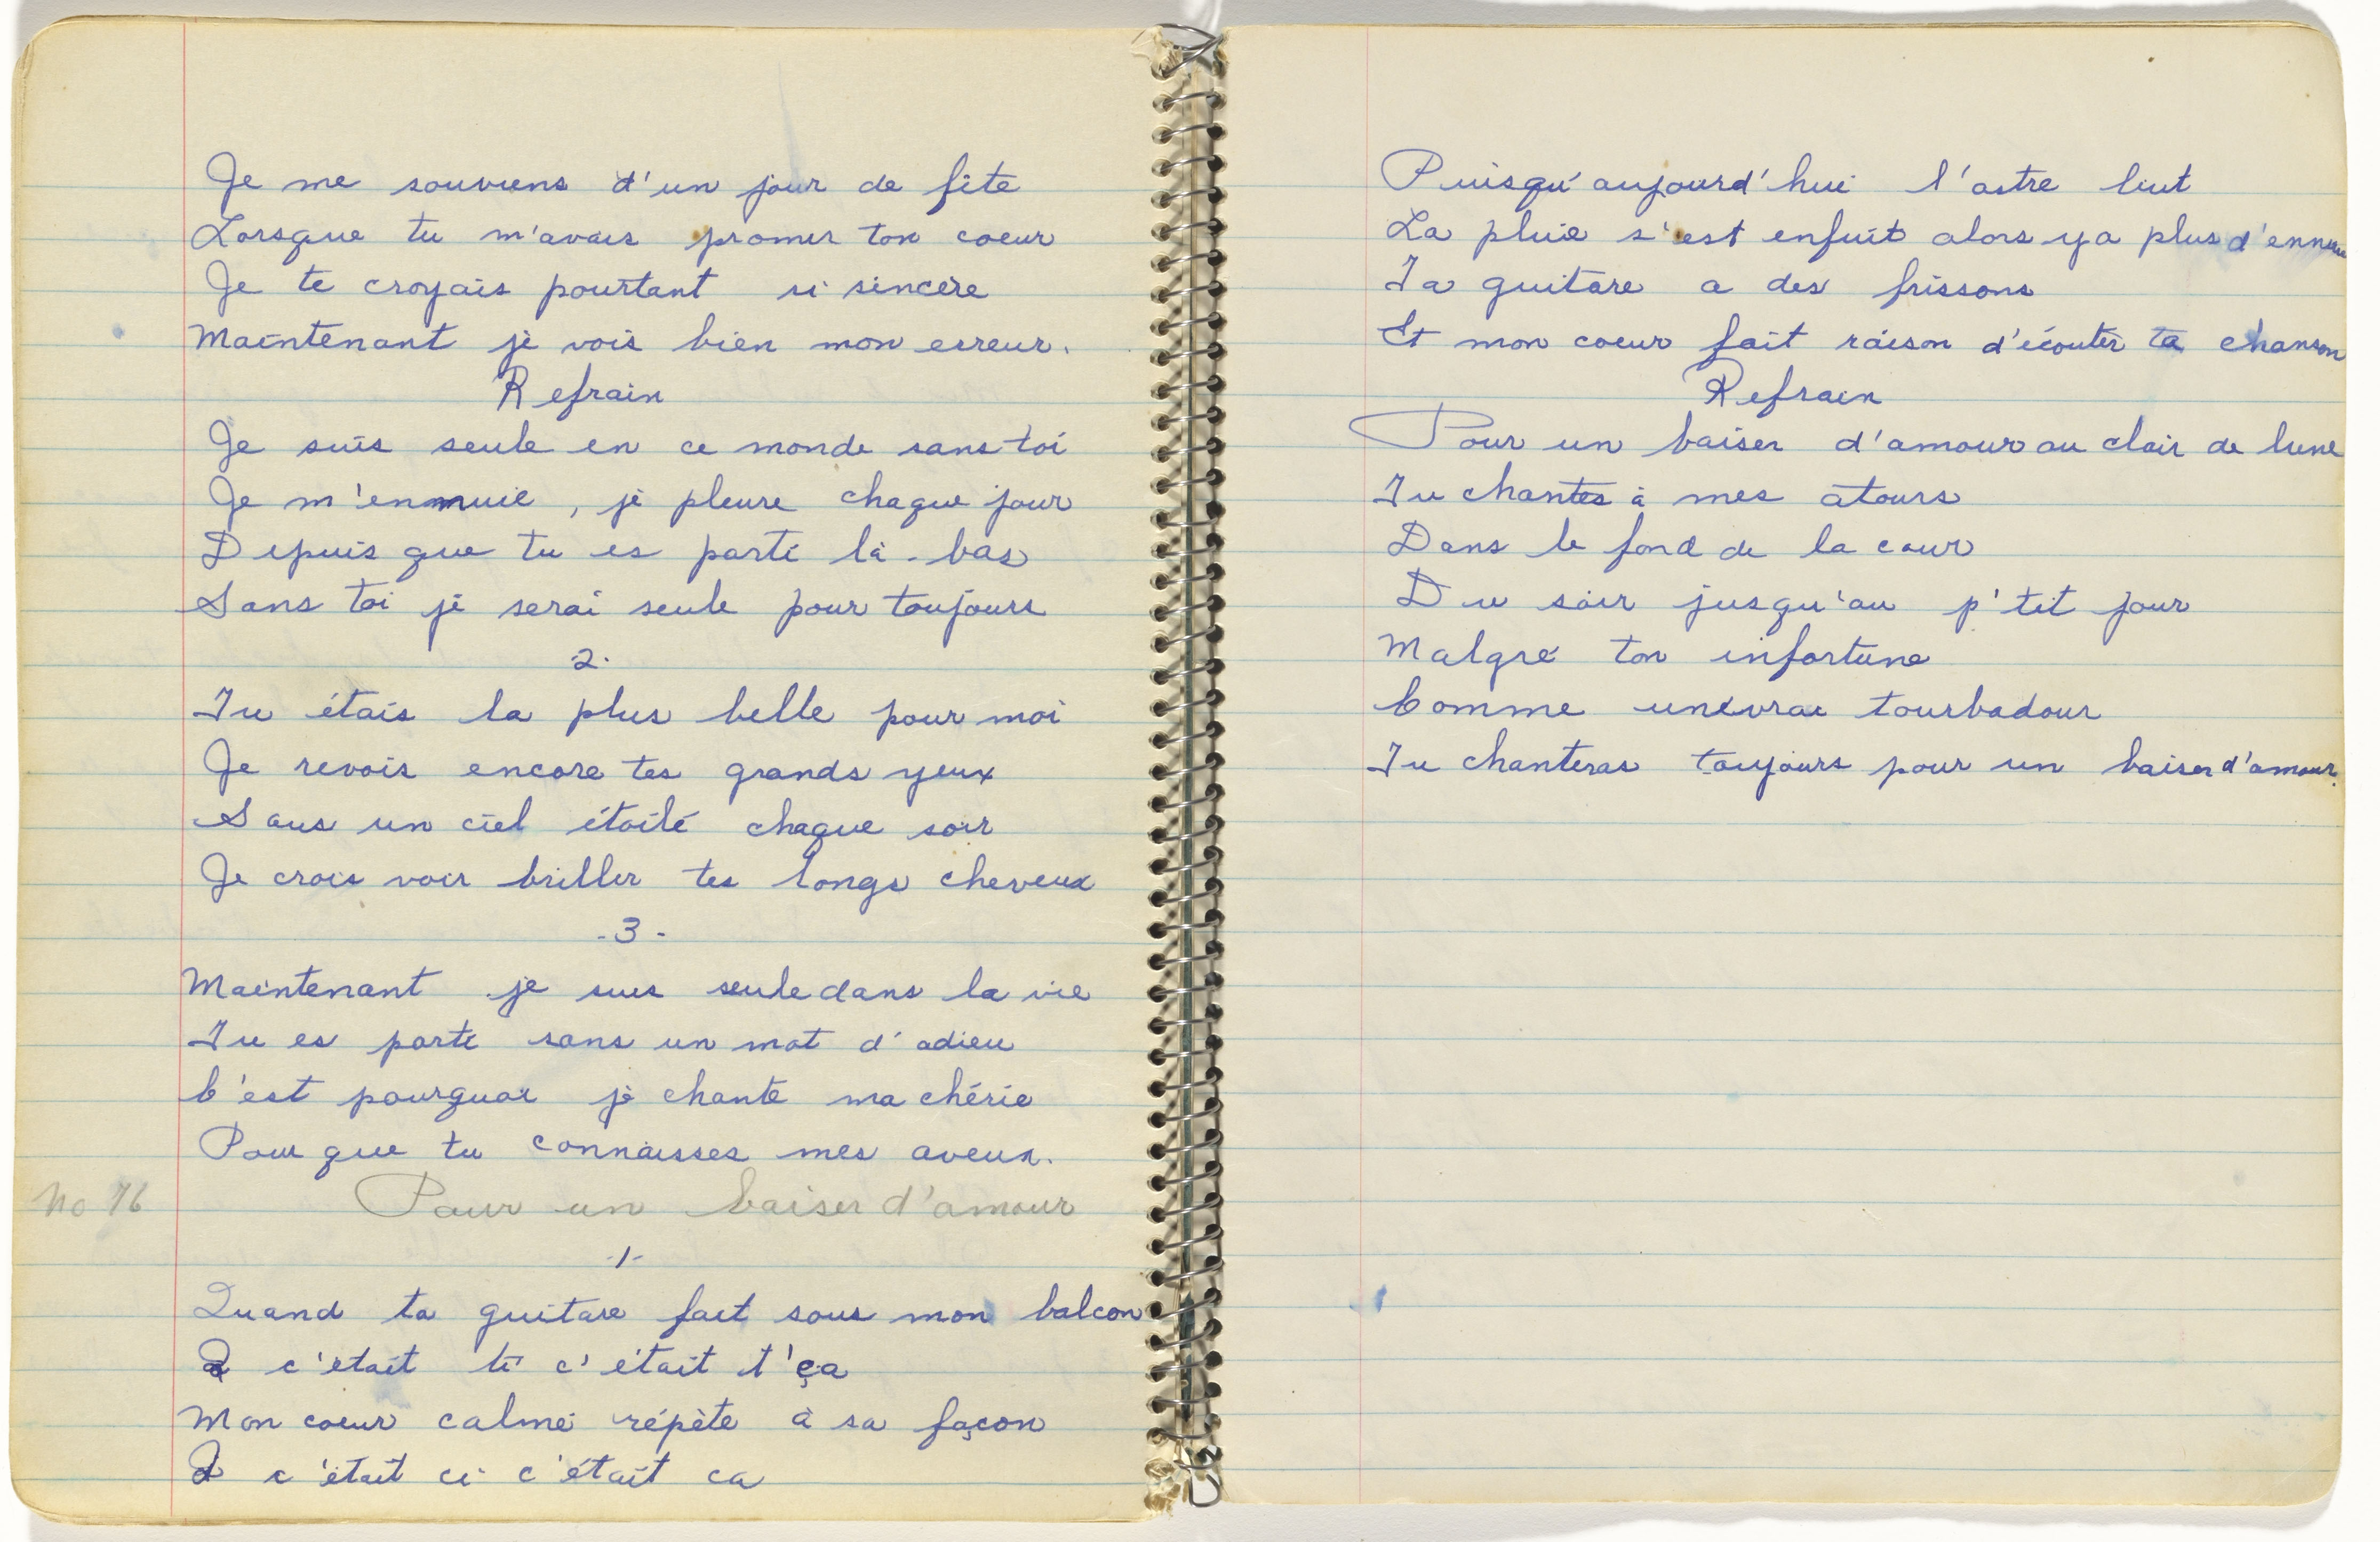 Je me souviens d'un jour de fête
Lorsque tu m'avais promis ton coeur
Je te croyais pourtant si sincère
Maintenant je vois bien mon erreur.
Refrain
Je suis seule en ce monde sans toi
Je m'ennuie, je pleure chaque jour
Depuis que tu es parti là-bas
Sans toi je serai seule pour toujours
2.
Tu étais la plus belle pour moi
Je revois encore tes grands yeux
Sous un ciel étoilé chaque soir
Je crois voir briller tes longs cheveux
-3-
Maintenant je suis seule dans la vie
Tu es parti sans un mot d'adieu
C'est pourquoi je chante ma chérie
Pour que tu connaisses mes aveux.
No 76 Pour un baiser d'amour
-1-
Quand ta guitare fait sous mon balcon
c'était ti c'était t'ça
Mon coeur calmé répète à sa façon
c'était ci c'était ca
Puisqu'aujourd'hui l'astre luit
La pluie s'est enfuit alors y a plus d'ennui
Ta guitare a des frissons
Et mon coeur fait raison d'écouter ta chanson
Refrain
Pour un baiser d'amour au clair de lune
Tu chantes à mes atours
Dans le fond de la cour
Du soir jusqu'au p'tit jour
Malgré ton infortune
Comme une vrai tourbadour
Tu chanteras toujours pour un baiser d'amour.